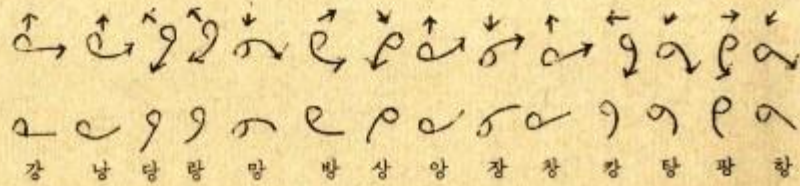 강 낭 당 랑 망 방 상 앙 장 창 캉 탕 팡 항